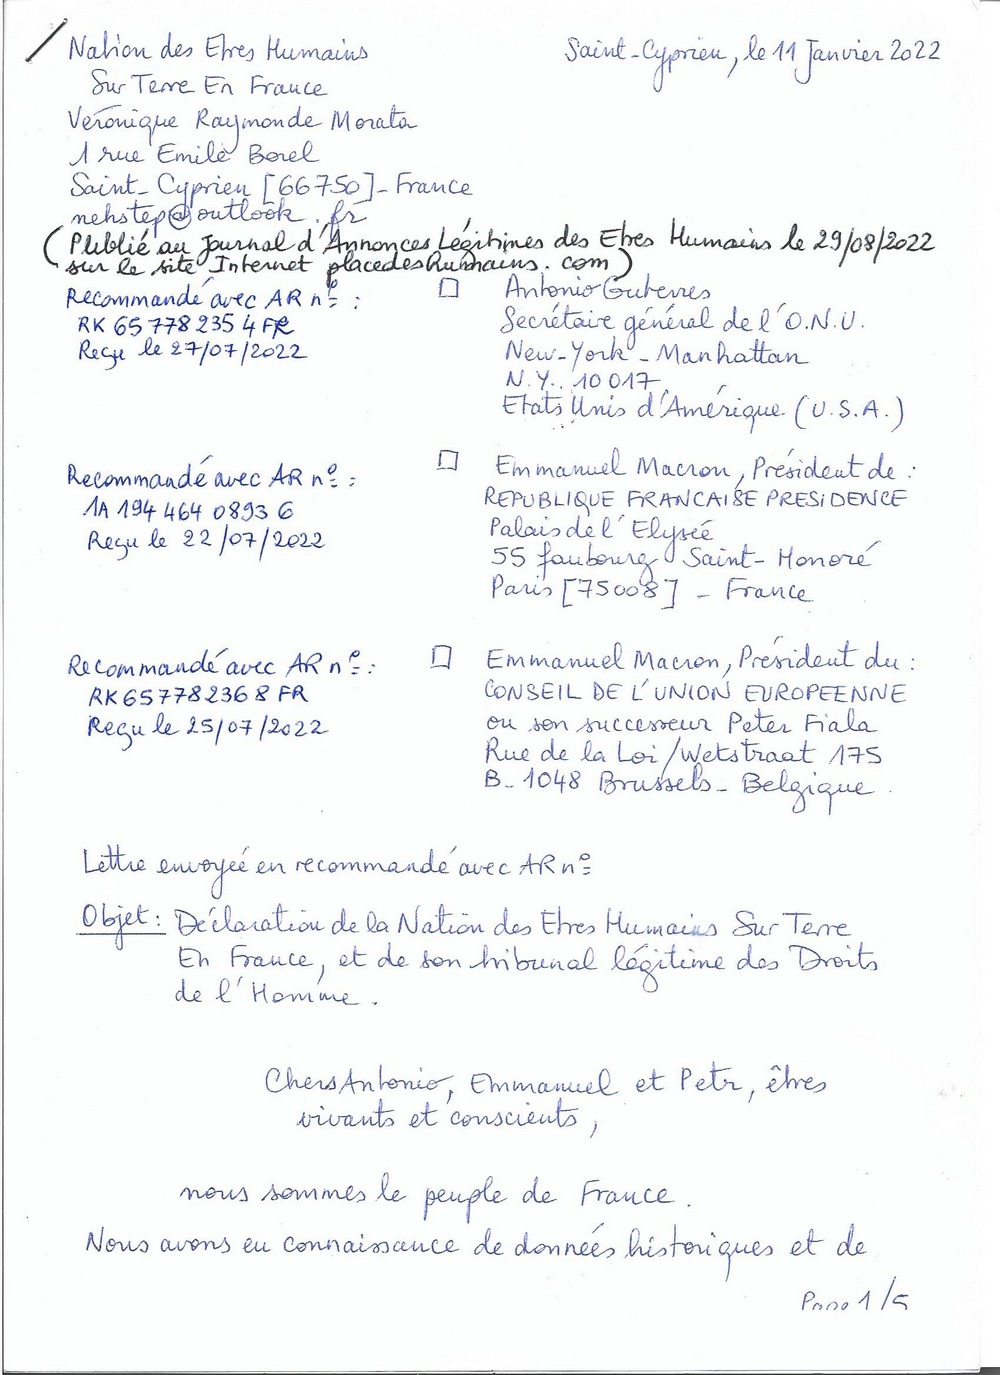 Nation des Etres Humains
Saint-Cyprien, le 11 Janvier 2022
Sur Terre En France
Véronique Raymonde Morata
1 rue Emile Borel
Saint-Cyprien [66750]-France
nehstep@outlook.fr
(Publié au Journal d'Annonces Légitimes des Etres Humains le 29/08/2022
sur le site Internet placedeshumains.com)
Recommandé avec AR n° :
RK 65 778 235 4 FR
Reçu le 27/07/2022
□ Antonio Guterres
Secrétaire général de l'O.N.U.
New-York - Manhattan
N.Y. 10017
Etats Unis d'Amérique (U.S.A.)
Recommandé avec AR n° :
1A 194 464 0893 6
Reçu le 22/07/2022
□ Emmanuel Macron, Président de :
REPUBLIQUE FRANCAISE PRESIDENCE
Palais de l'Elyseé
55 faubourg Saint-Honoré
Paris [75008] - France
Recommandé avec AR n° :
RK 65 778 236 8 FR
Reçu le 25/07/2022
□ Emmanuel Macron, Président du :
CONSEIL DE L'UNION EUROPEENNE
ou son successeur Peter Fiala
Rue de la Loi/Wetstraat 175
B-1048 Brussels - Belgique
Lettre envoyée en recommandé avec AR n°
Objet : Déclaration de la Nation des Etres Humains Sur Terre
En France, et de son tribunal légitime des Droits
de l'Homme.
Chers Antonio, Emmanuel et Petr, êtres
vivants et conscients,
nous sommes le peuple de France.
Nous avons eu connaissance de données historiques et de
Page 1/5